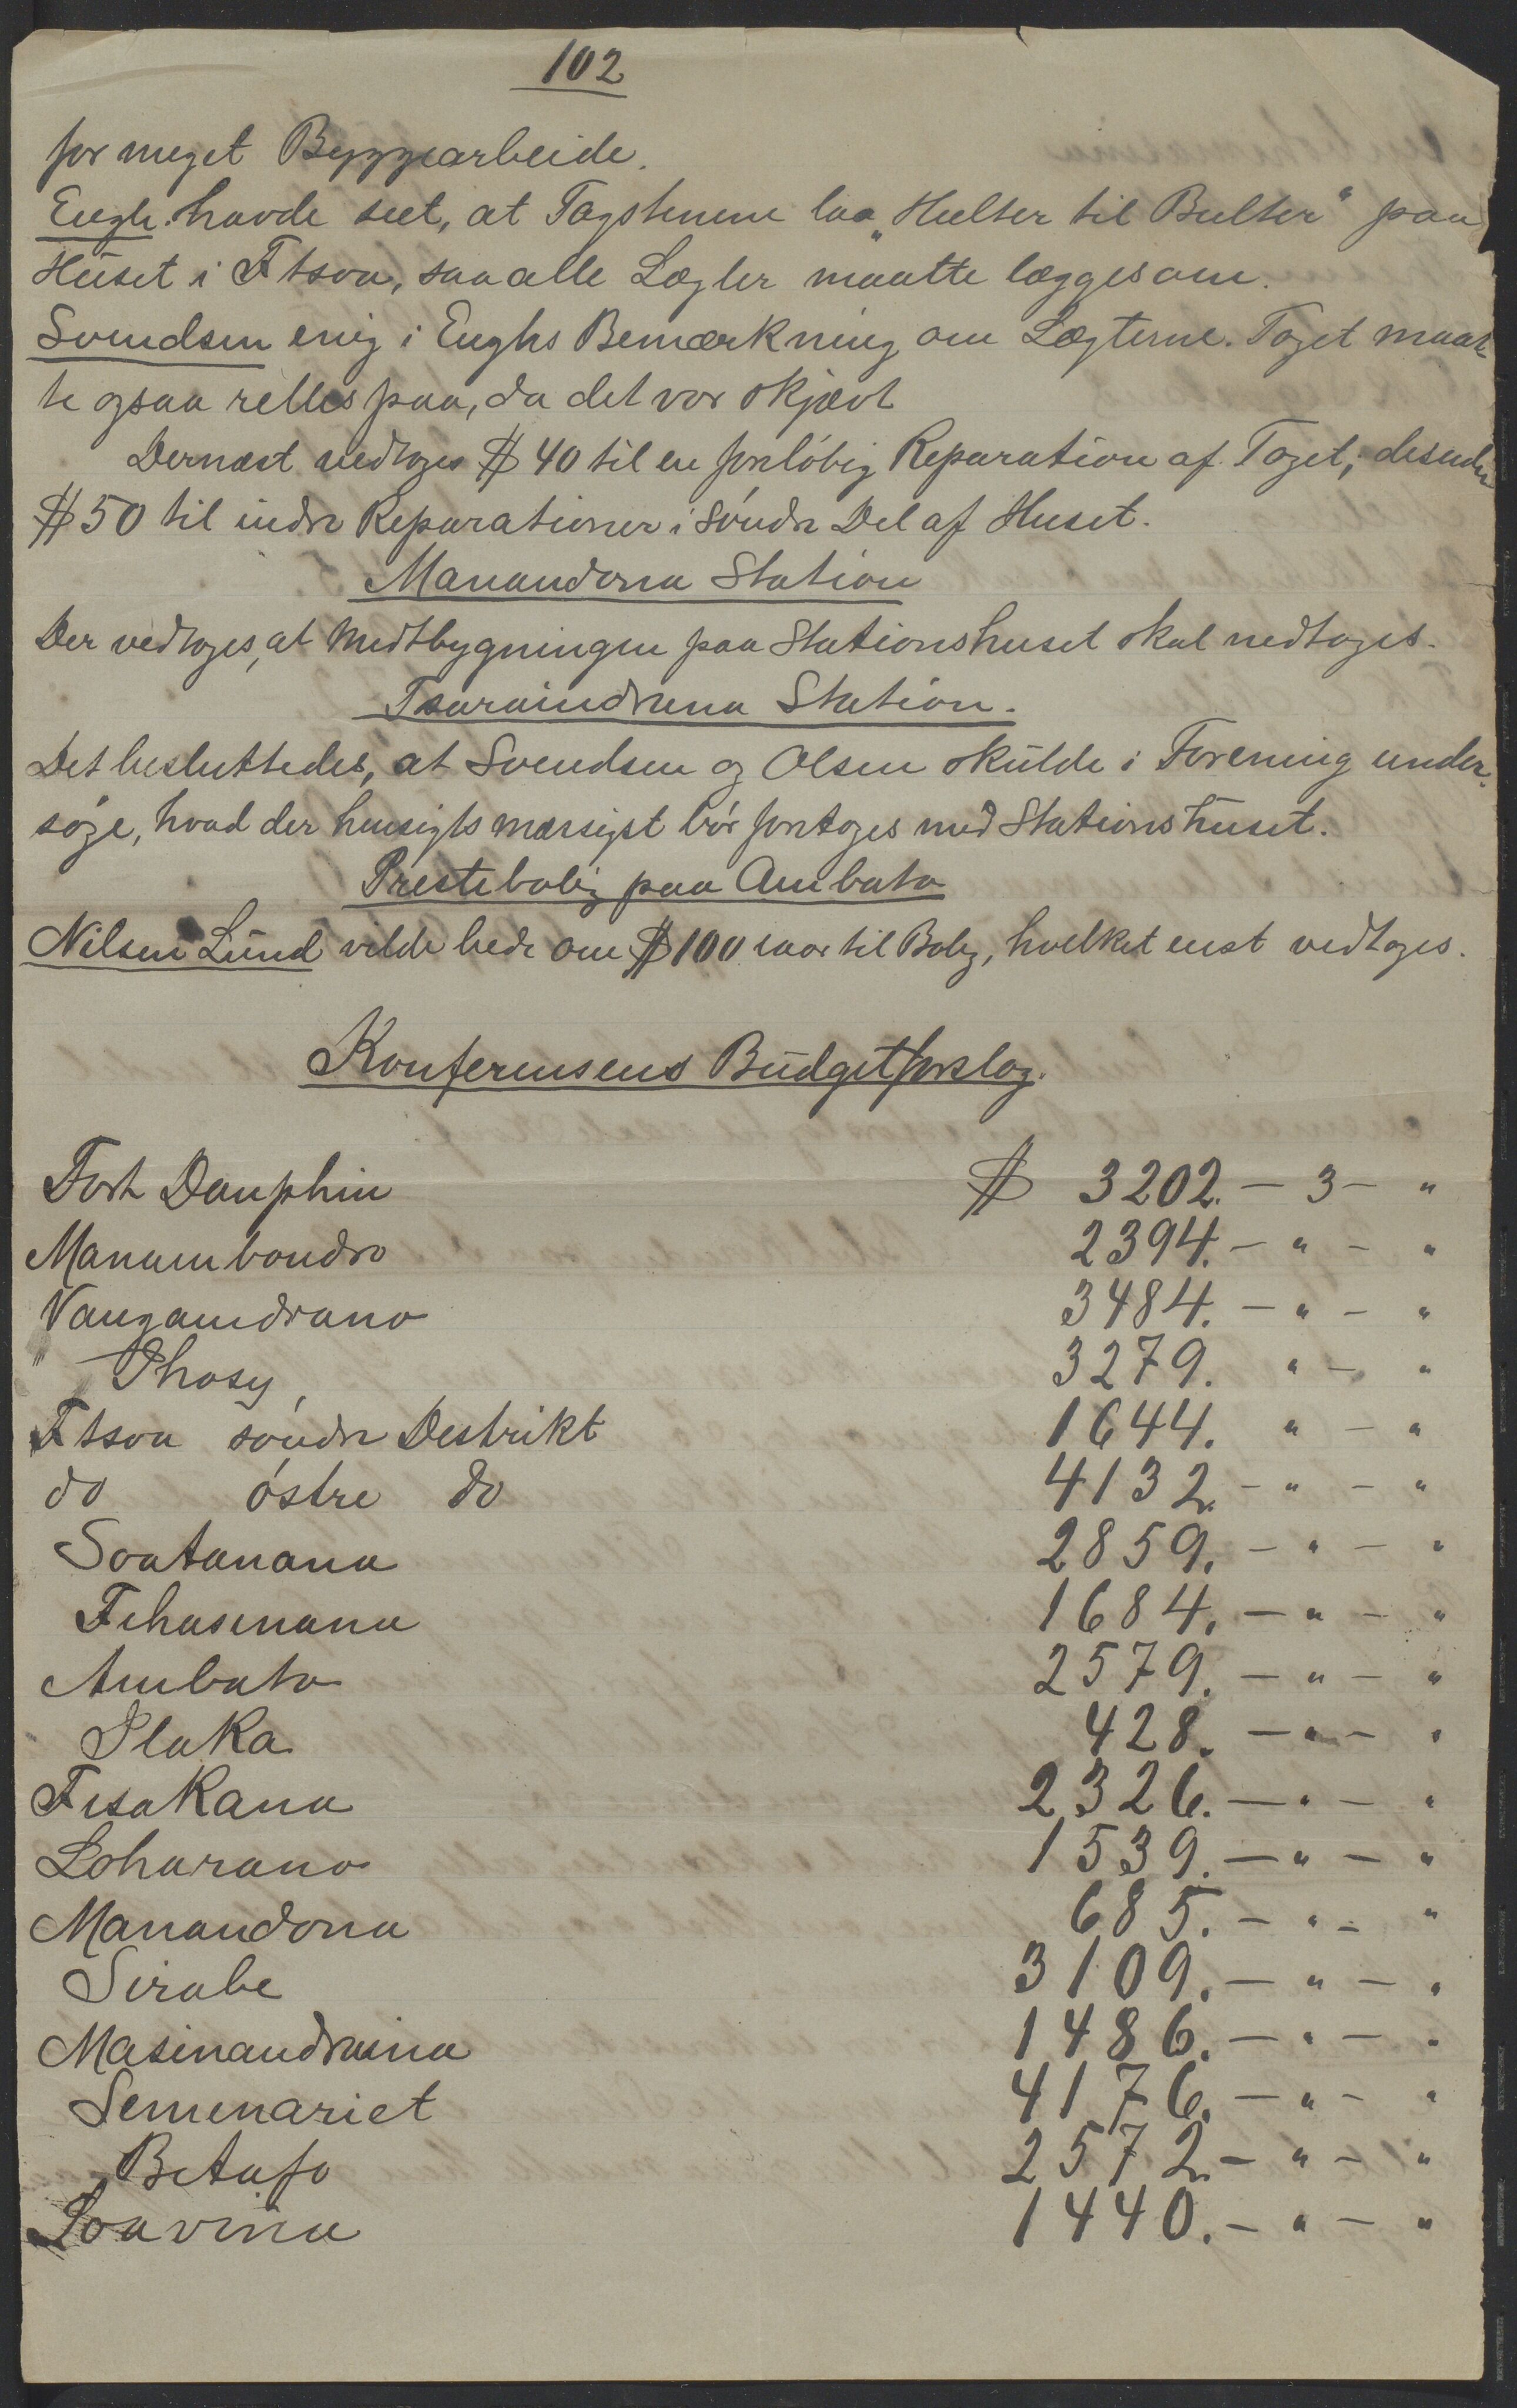 102
for meget Byggearbeide.
Engh. havde seet, at Tagstenene laa „Hulter til Bulter" paa
Huset i F tsoa, saa alle Lægter maatte lægges om.
Svendsen enig i Enghs Bemærkning om Lægterne. Taget maat-
te ogsaa rettes paa, da det var skjævt
Dernæst vedtoges $ 40 til en foreløbig Reparation af Taget; desuden
$ 50 til indre Reparationer i søndre Del af Huset.
Manandona Station
Der vedtoges, at Midtbygningen paa Stationshuset skal nedtages.
Tsaraindrana Station.
Det besluttedes, at Svendsen og Olsen skulde i Forening under-
søge, hvad der hensigtsmæsigst bør foretages med Stationshuset.
Prestebolig paa Ambato
Nilsen Lund vilde bede om $ 100 iaar til Bolig, hvilket enst vedtoges.
Konferensens Budgetforslag.
Fort Dauphin $ 3202. - 3 - "
Manambondro 2394. - " - "
Vangaindrano 3484. - " - "
" Ihosy, 3279. " - "
F tsoa søndre Destrikt 1644. " - "
do østre do 4132. - " - "
Soatanana 2859. - " - "
Fihasinana 1684. - " - "
Ambato 2579. - " - "
Ilaka 428. - " - "
Fisakana 2326. - " - "
Loharano 1539. - " - "
Manandona 685. - " - "
Sirabe 3109. - " - "
Masinandraina 1486. - " - "
Semenariet 4176. - " - "
Betafo 2572. - " - "
Soavina 1440. - " - "